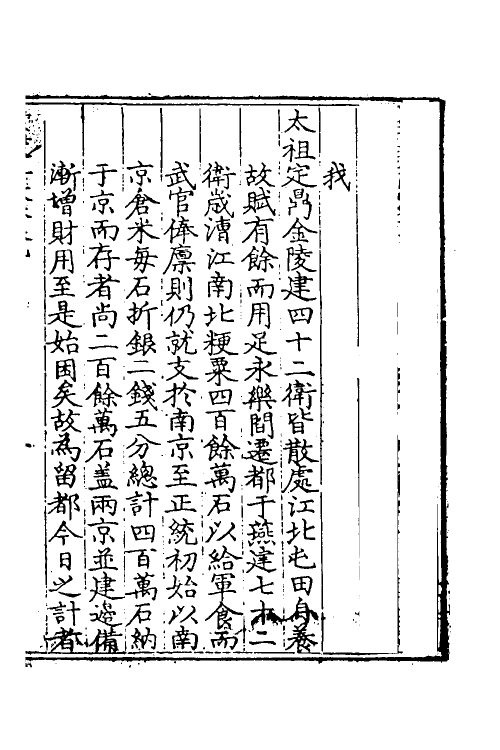 我
太祖定鼎金陵建四十二衛皆散處江北屯田自養
故賦有餘而用足永樂間遷都于燕建七十二
衛歲漕江南北粳粟四百餘萬石以給軍食而
武官俸廩則仍就支於南京至正統初始以南
京倉米每石折銀二錢五分總計四百萬石納
于京而存者尚二百餘萬石盖兩京並建邊備
漸增財用至是始困矣故為留都今日之計者